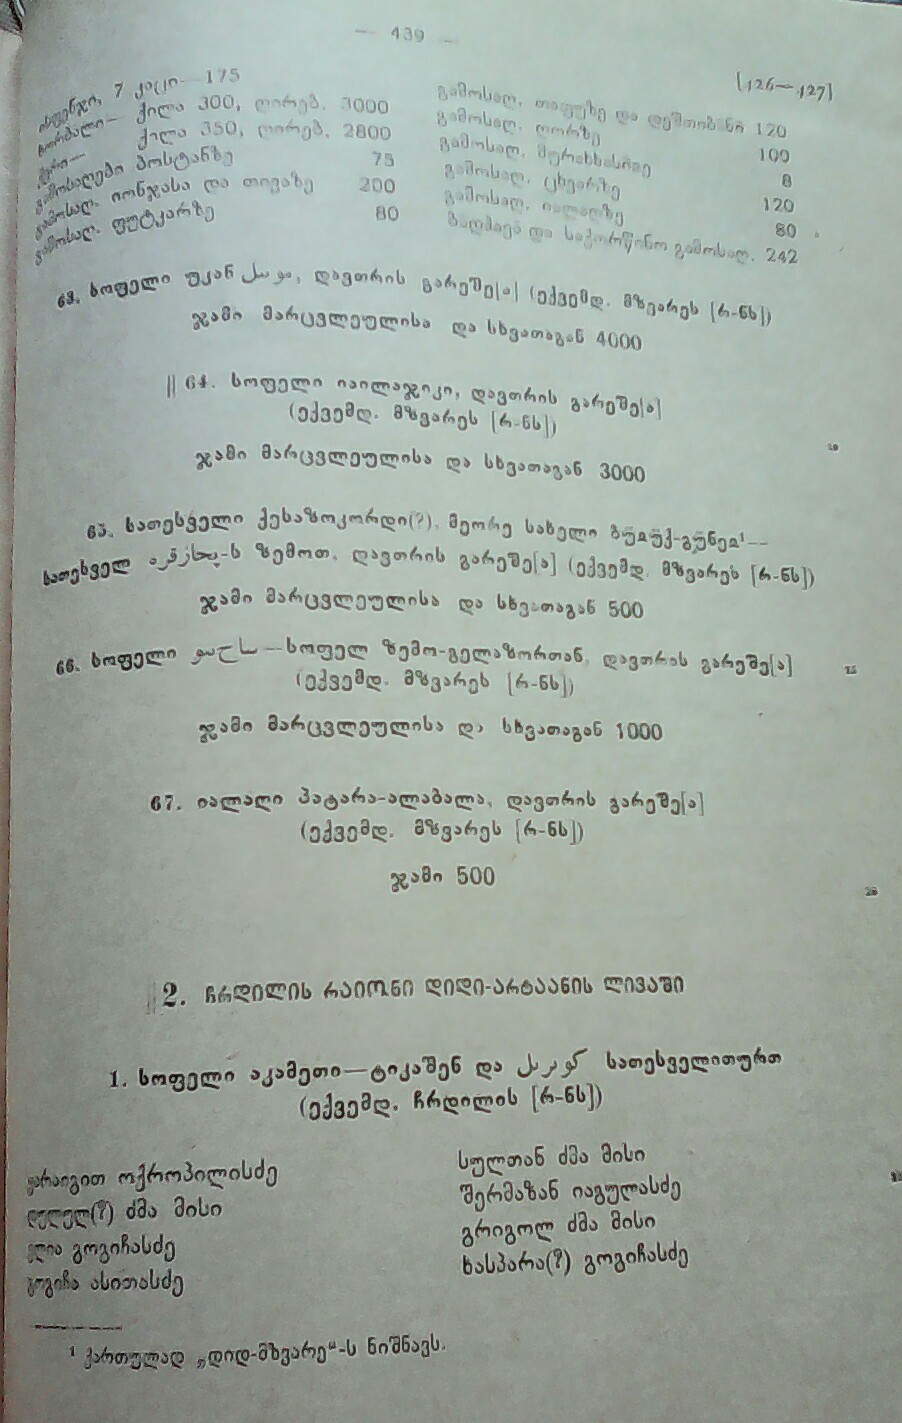 — 439 —
[126—127]
ისფენჯი, 7 კაცი—175
ხორბალი— ქილა 300, ღირებ. 3000
ქერი— ქილა 350, ღირებ. 2800
გამოსაღები ბოსტანზე 75
გამოსაღ. იონჯასა და თივაზე 200
გამოსაღ. ფუტკარზე 80
გამოსაღ. თაფუზე და დეშთიბანი 120
გამოსაღ. ღორზე 100
გამოსაღ. 8
გამოსაღ. ცხვარზე 120
გამოსაღ. იალაღზე 80
ბადჰავა და საქორწინო გამოსაღ. 242
63. სოფელი უკან دوسل, დავთრის გარეშე[ა] (ექვემდ. მზვარეს [რ-ნს])
ჯამი მარცვლეულისა და სხვათაგან 4000
|| 64. სოფელი იაილაჯიკი, დავთრის გარეშე[ა]
(ექვემდ. მზვარეს [რ-ნს])
ჯამი მარცვლეულისა და სხვათაგან 3000
65. სათესველი ქესაზოკორდი(?), მეორე სახელი
სათესველ -ს ზემოთ, დავთრის გარეშე[ა] (ექვემდ. მზვარეს [რ-ნს])
ჯამი მარცვლეულისა და სხვათაგან 500
66. სოფელი —სოფელ ზემო-გელაზორთან, დავთრის გარეშე[ა]
15
(ექვემდ. მზვარეს [რ-ნს])
ჯამი მარცვლეულისა და სხვათაგან 1000
67. იალაღი პატარა-ალაბალა, დავთრის გარეშე[ა]
(ექვემდ. მზვარეს [რ-ნს])
ჯამი 500
20
|| 2. ჩრდილის რაიონი დიდი-არტაანის ლივაში
1. სოფელი აკამეთი—ტიკაშენ და სათესველითურთ
(ექვემდ. ჩრდილის [რ-ნს])
ყარაიგით ოქროპილისძე
დელელ(?) ძმა მისი
ელია გოგიჩასძე
გოგიჩა ასითასძე
სულთან ძმა მისი
შერმაზან იაგულასძე
გრიგოლ ძმა მისი
ხასპარა(?) გოგიჩასძე
¹ ქართულად „დიდ-მზვარე“-ს ნიშნავს.